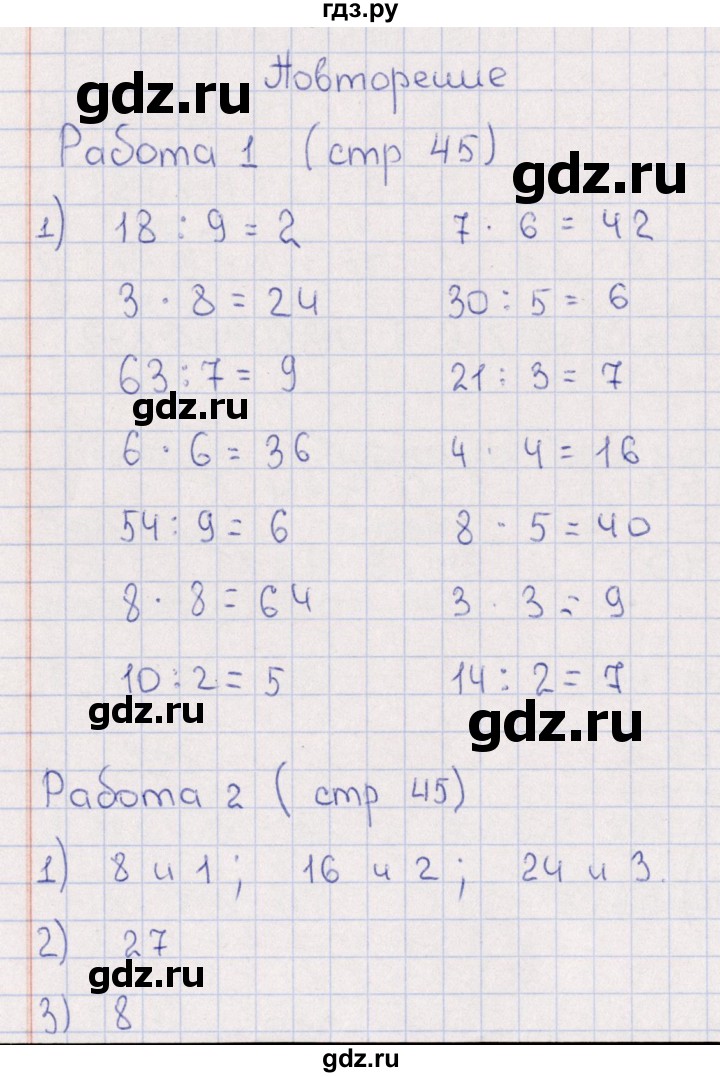 гдз.ру
Повторение
gdz.ru
Работа 1 (стр 45)
gdz.ru
1) 18 : 9 = 2 7 · 6 = 42
3 · 8 = 24 30 : 5 = 6
63 : 7 = 9 21 : 3 = 7
gdz.ru
6 · 6 = 36 4 · 4 = 16
54 : 9 = 6 8 · 5 = 40
8 · 8 = 64 3 · 3 = 9
10 : 2 = 5 14 : 2 = 7
gdz.ru
gdz.ru
Работа 2 (стр 45)
1) 8 и 1 ; 16 и 2 ; 24 и 3.
2) 27
gdz.ru
3) 8
gdz.ru